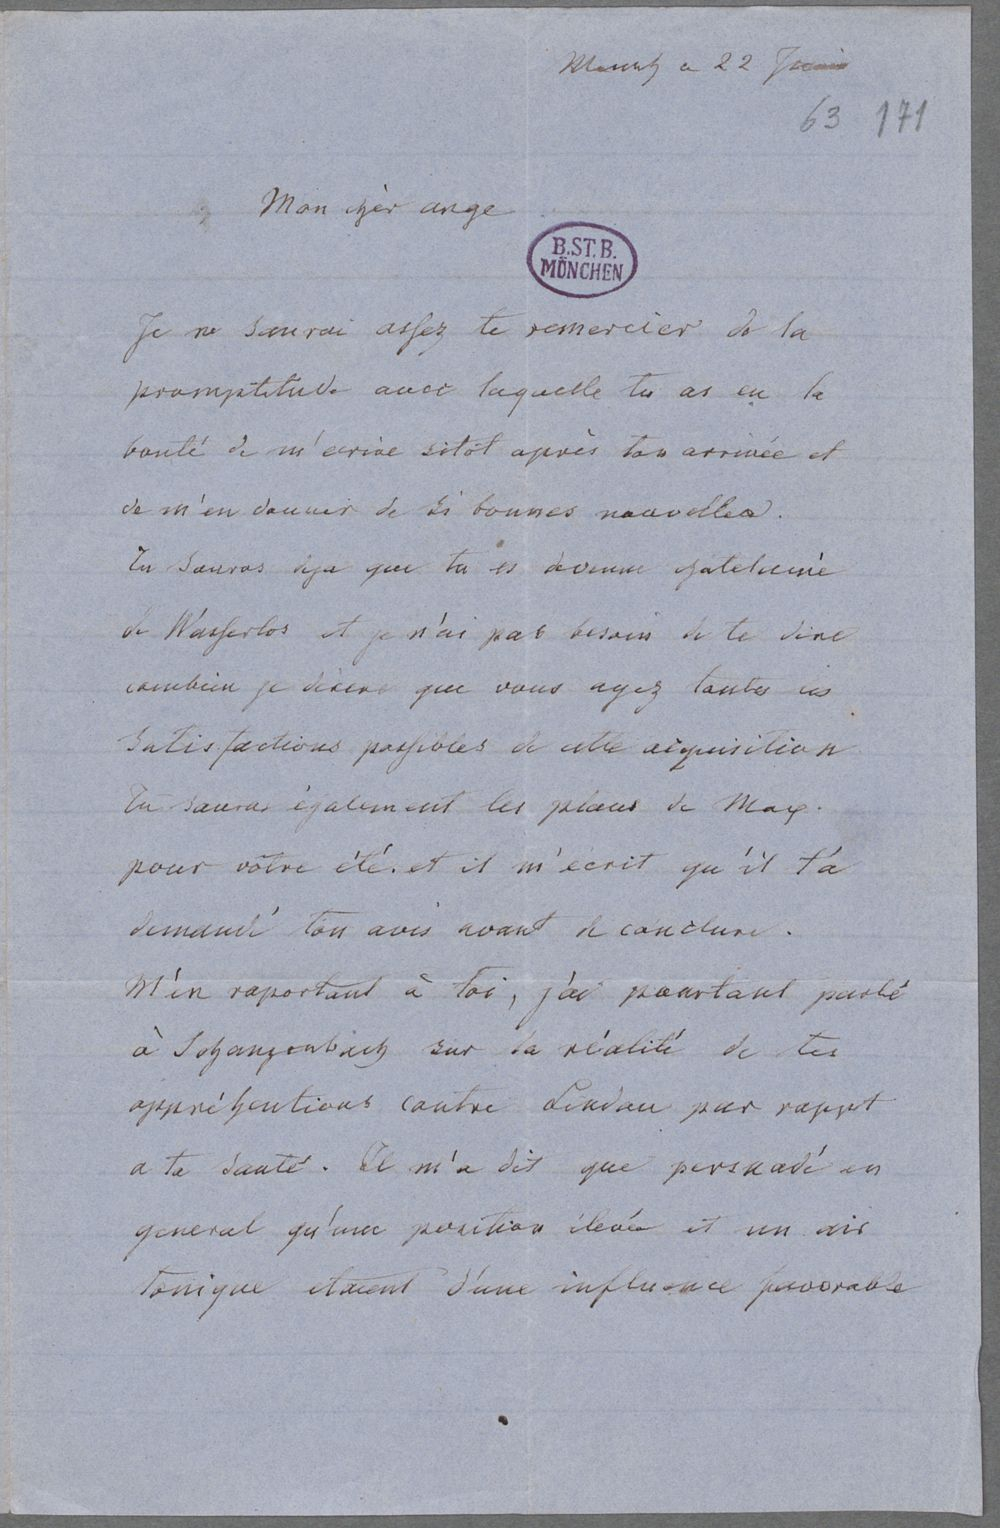 Munch ce 22 Juin
63 171
Mon cher ange
B.ST.B.
MÜNCHEN
Je ne saurai assez te remercier de la
promptitude avec laquelle tu as eu la
bonté de m'ecrire sitôt après ton arrivée et
de m'en donner de si bonnes nouvelles.
Tu sauras deja que tu es devenue chatelaine
de Wasserlos et je n'ai pas besoin de te dire
combien je désire que vous ayez toutes les
satisfactions possibles de cette acquisition
Tu sauras également les plans de Max.
pour vôtre été. et il m'écrit qu'il t'a
demandé ton avis avant de conclure.
M'en raportant à toi, j'ai pourtant parlé
à Schanzenbach sur la réalité de tes
appréhentions contre Lindau par rapport
a ta santé. Il m'a dit que persuadé en
general qu'une position élevée et un air
tonique etaient d'une influence favorable